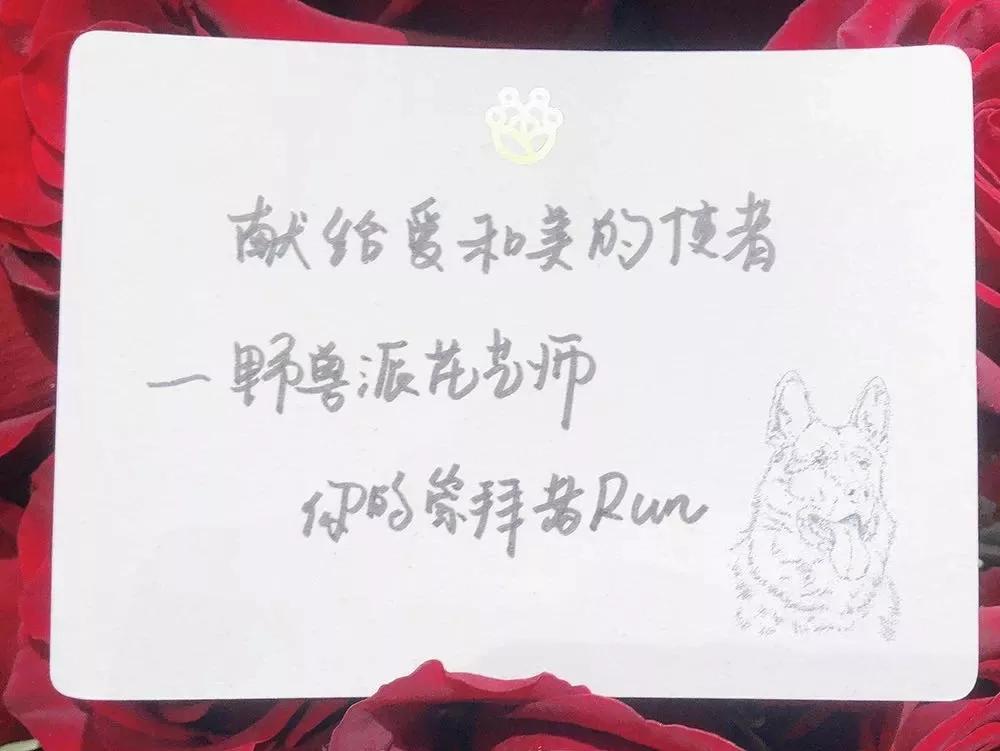 献给爱和美的使者
一野兽派花艺师
你的崇拜者Run